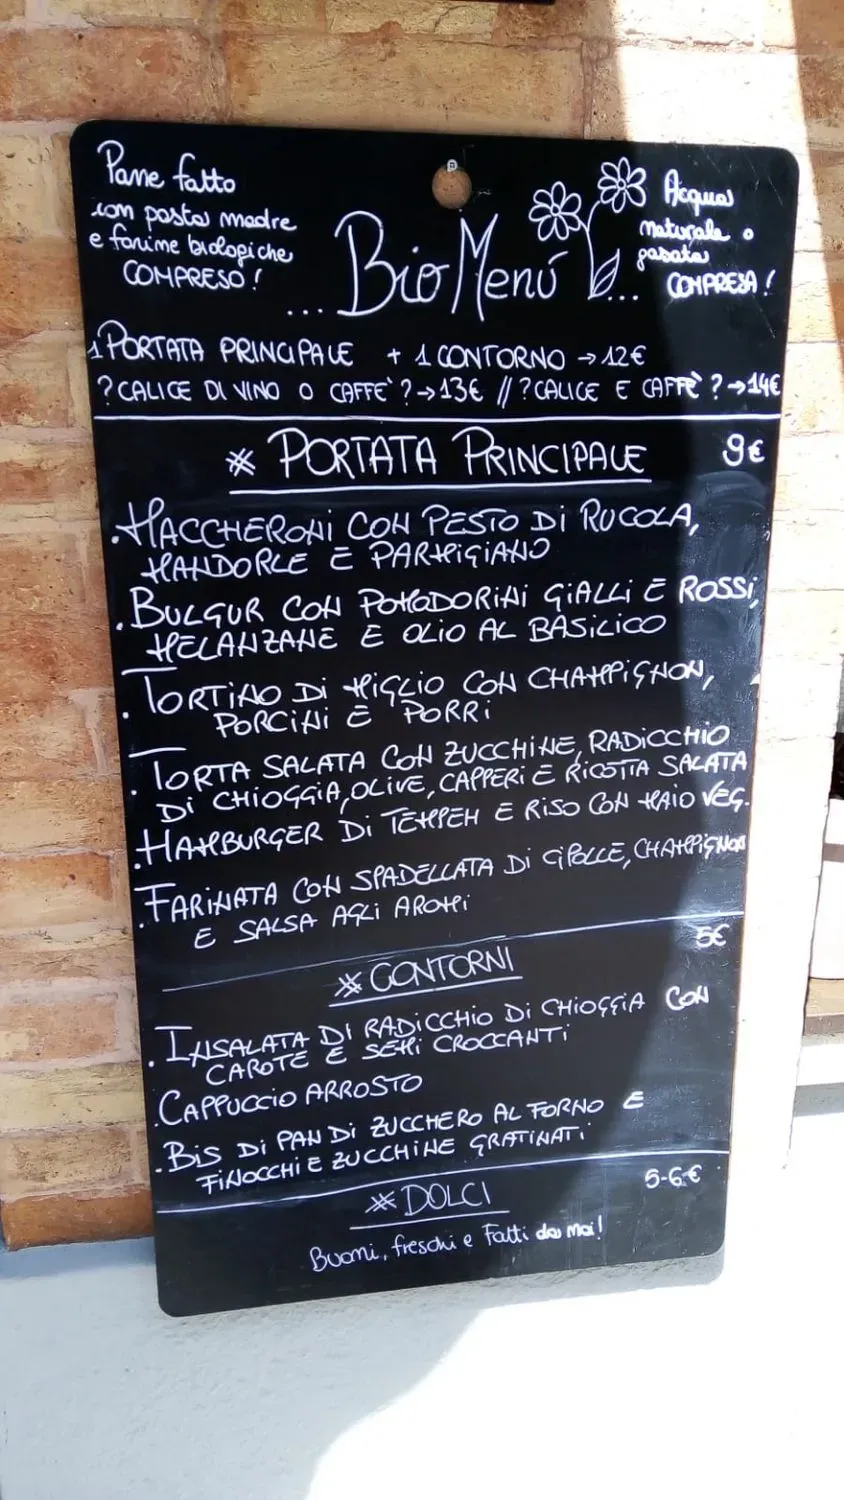 Pane fatto
con pasta madre
e farine biologiche
COMPRESO!
Acqua
naturale o
gasata
COMPRESA!
...BioMenú...
1 PORTATA PRINCIPALE + 1 CONTORNO → 12€
? CALICE DI VINO O CAFFE' ? → 13€ // ? CALICE E CAFFÈ ? → 14€
* PORTATA PRINCIPALE 9€
. MACCHERONI CON PESTO DI RUCOLA,
MANDORLE E PARMIGIANO
. BULGUR CON POMODORINI GIALLI E ROSSI,
MELANZANE E OLIO AL BASILICO
. TORTINO DI MIGLIO CON CHAMPIGNON,
PORCINI E PORRI
. TORTA SALATA CON ZUCCHINE, RADICCHIO
DI CHIOGGIA, OLIVE, CAPPERI E RICOTTA SALATA
. HAMBURGER DI TEMPEH E RISO CON MAIO VEG.
. FARINATA CON SPADELLATA DI CIPOLLE, CHAMPIGNON
E SALSA AGLI AROMI
* CONTORNI 5€
. INSALATA DI RADICCHIO DI CHIOGGIA CON
CAROTE E SEMI CROCCANTI
. CAPPUCCIO ARROSTO
. BIS DI PAN DI ZUCCHERO AL FORNO E
FINOCCHI E ZUCCHINE GRATINATI
* DOLCI 5-6€
Buoni, freschi e Fatti da noi!